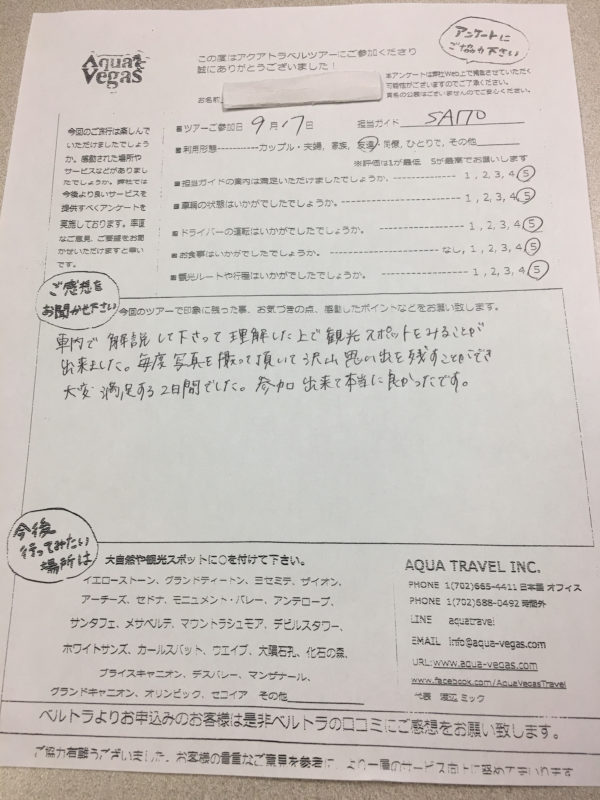 Aqua Vegas
この度はアクアトラベルツアーにご参加くださり
誠にありがとうございました！
アンケートに
ご協力下さい
本アンケートは弊社Web上で掲載させていただく
可能性がございますのでご了承ください。
実名の公表はございませんのでご安心ください。
お名前
■ツアーご参加日 9月17日 担当ガイド SAITO
■利用形態------------カップル・夫婦, 家族, 友達, 同僚, ひとりで, その他
※評価は1が最低 5が最高でお願いします
■担当ガイドの案内は満足いただけましたでしょうか。 1, 2, 3, 4, 5
■車輌の状態はいかがでしたでしょうか。 1, 2, 3, 4, 5
■ドライバーの運転はいかがでしたでしょうか。 1, 2, 3, 4, 5
■お食事はいかがでしたでしょうか。 なし, 1, 2, 3, 4, 5
■観光ルートや行程はいかがでしたでしょうか。 1, 2, 3, 4, 5
今回のご旅行は楽しんで
いただけましたでしょう
か。感動された場所や
サービスなどがありまし
たでしょうか。弊社では
今後より良いサービスを
提供すべくアンケートを
実施しております。率直
なご意見、ご要望をお聞
かせいただけますと幸い
です。
ご感想を
お聞かせ下さい
今回のツアーで印象に残った事、お気づきの点、感動したポイントなどをお願い致します。
車内で解説して下さって理解した上で観光スポットをみることが
出来ました。毎度写真を撮って頂いて沢山思い出を残すことができ
大変満足する2日間でした。参加出来て本当に良かったです。
今後
行ってみたい
場所は
大自然や観光スポットに○を付けて下さい。
イエローストーン、グランドティートン、ヨセミテ、ザイオン、
アーチーズ、セドナ、モニュメント・バレー、アンテロープ、
サンタフェ、メサベルテ、マウントラシュモア、デビルスタワー、
ホワイトサンズ、カールスバット、ウエイブ、大隕石孔、化石の森、
ブライスキャニオン、デスバレー、マンザナール、
グランドキャニオン、オリンピック、セコイア その他
AQUA TRAVEL INC.
PHONE 1(702)665-4411 日本語 オフィス
PHONE 1(702)588-0492 時間外
LINE aquatravel
EMAIL info@aqua-vegas.com
URL: www.aqua-vegas.com
www.facebook.com/AquaVegasTravel
代表 渡辺 ミック
ベルトラよりお申込みのお客様は是非ベルトラの口コミにご感想をお願い致します。
ご協力有難うございました。お客様の貴重なご意見を参考に、より一層のサービス向上に努めてまいります